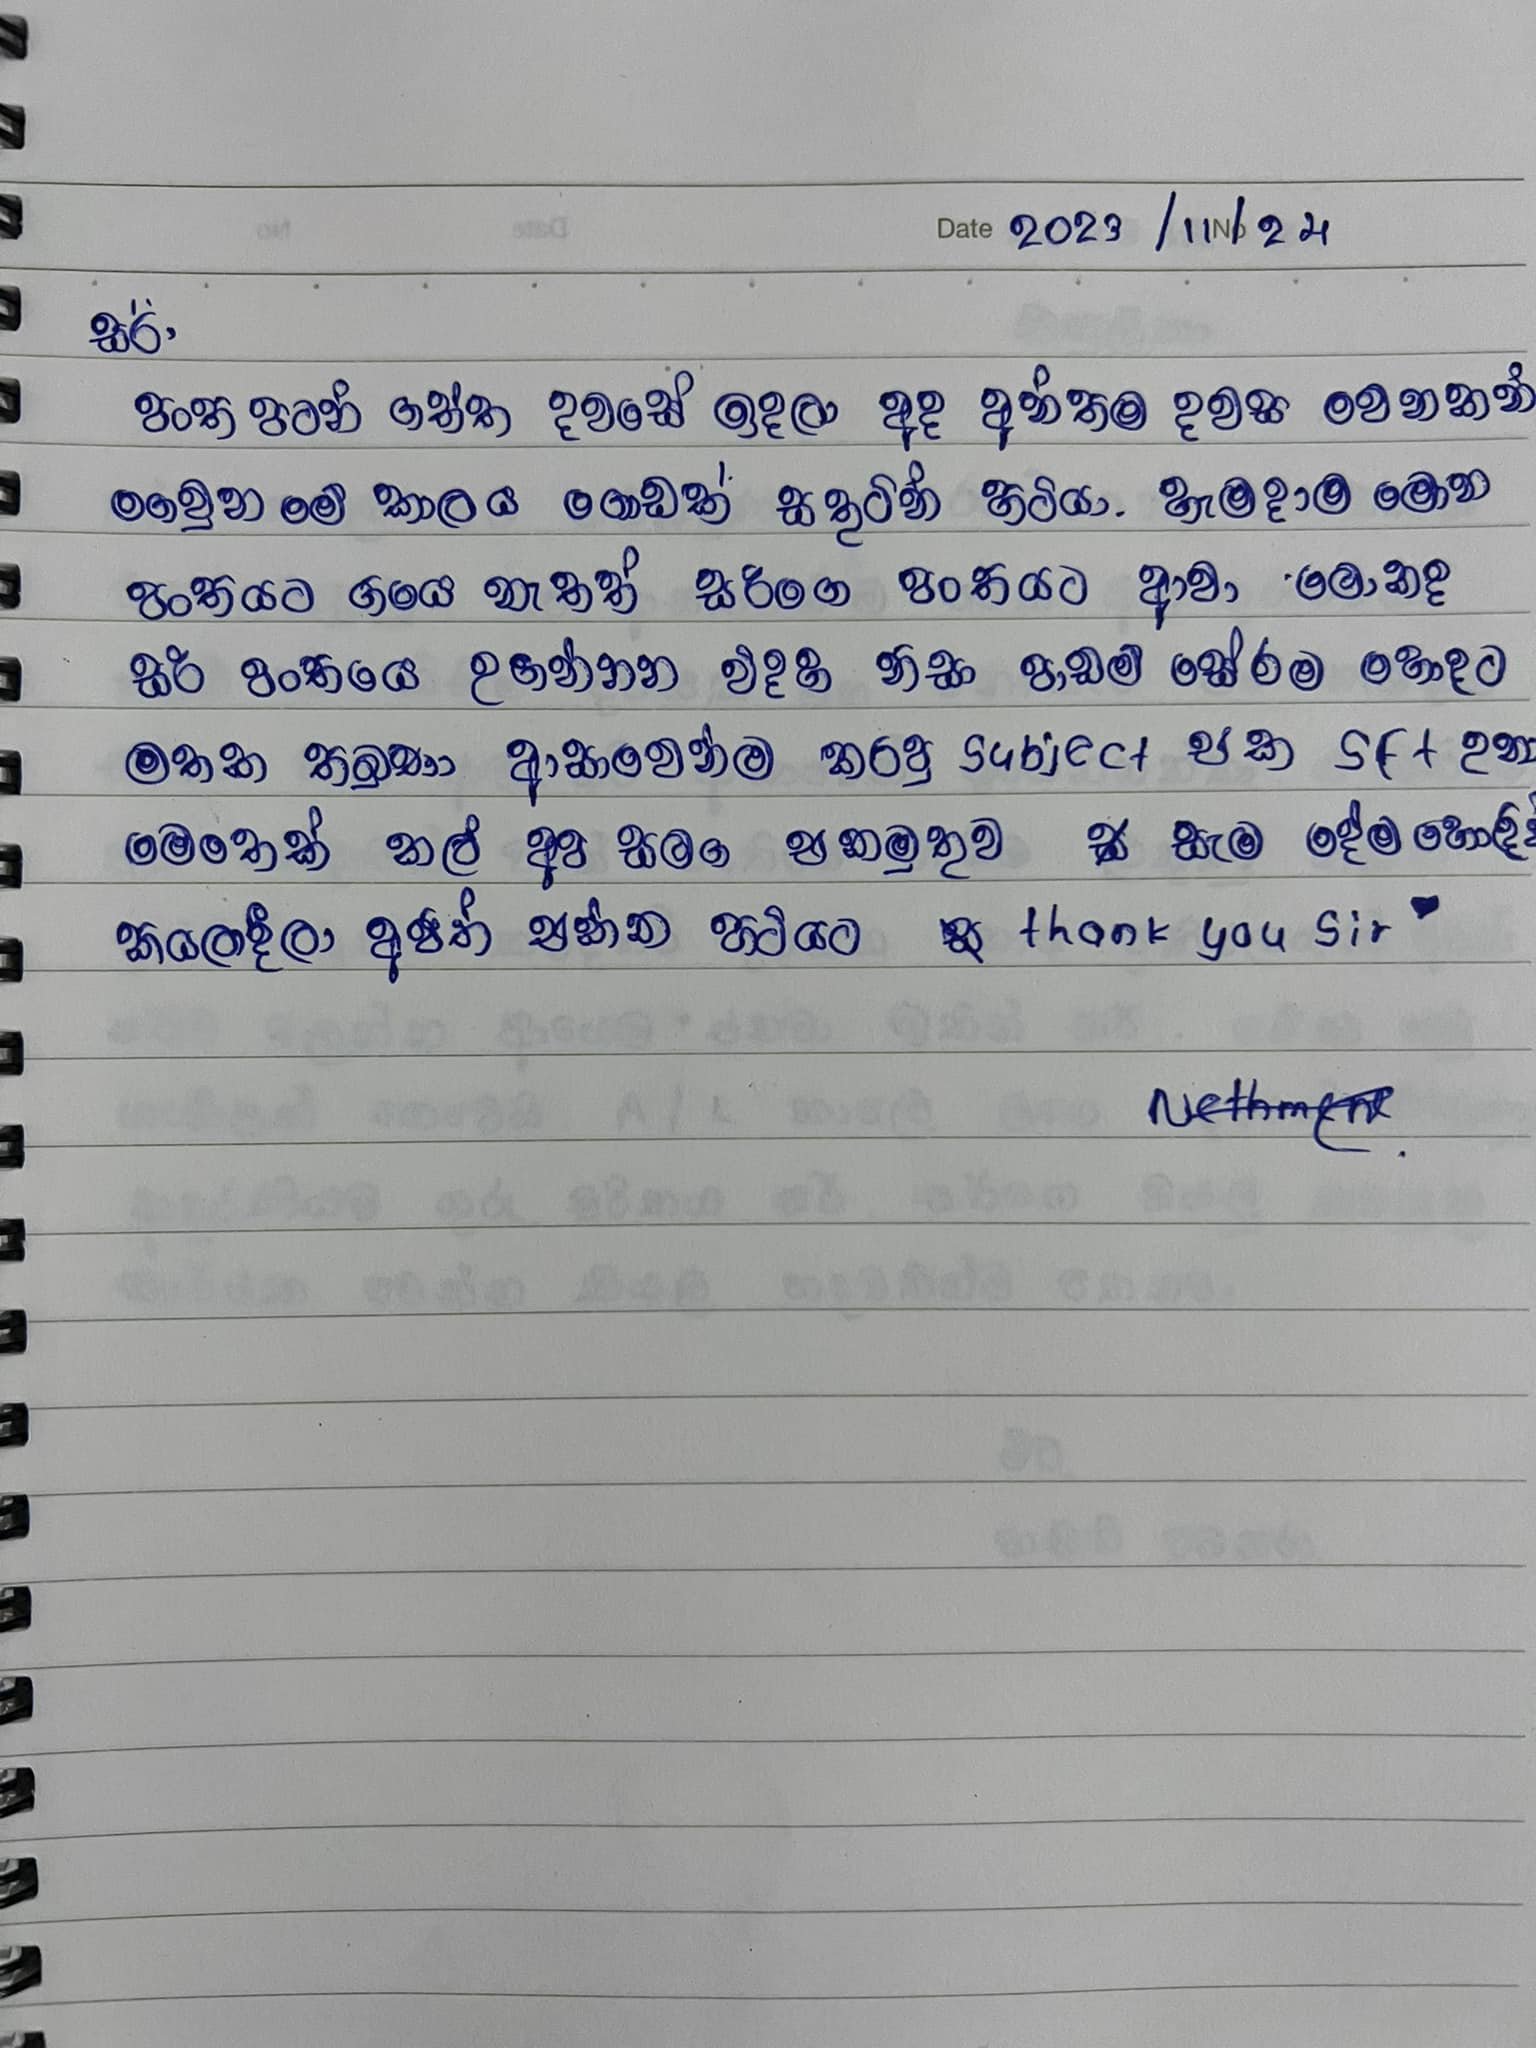 Date 2023 /11/No 24
සර්,
පංත පටන් ගත්ත දවසේ ඉදලා අද අන්තම දවස වෙනකන්
ගෙවුන මේ කාලය ගොඩක් සතුටින් හිටියා. හැමදාම මොන
පංතියට ගියෙ නැතත් සර්ගෙ පංතියට ආවා මොකද
සර් පංතියෙ උගන්නන විදිහ නිසා පාඩම් සේරම හොදට
මතක තිබුණා ආසාවෙන්ම කරපු subject එක Sft උනා
මෙතෙක් කල් අප සමග එකමුතුව සැම දේම හොඳින්
කියලාදීලා අපිත් එක්ක හිටියට thank you sir
Nethmene